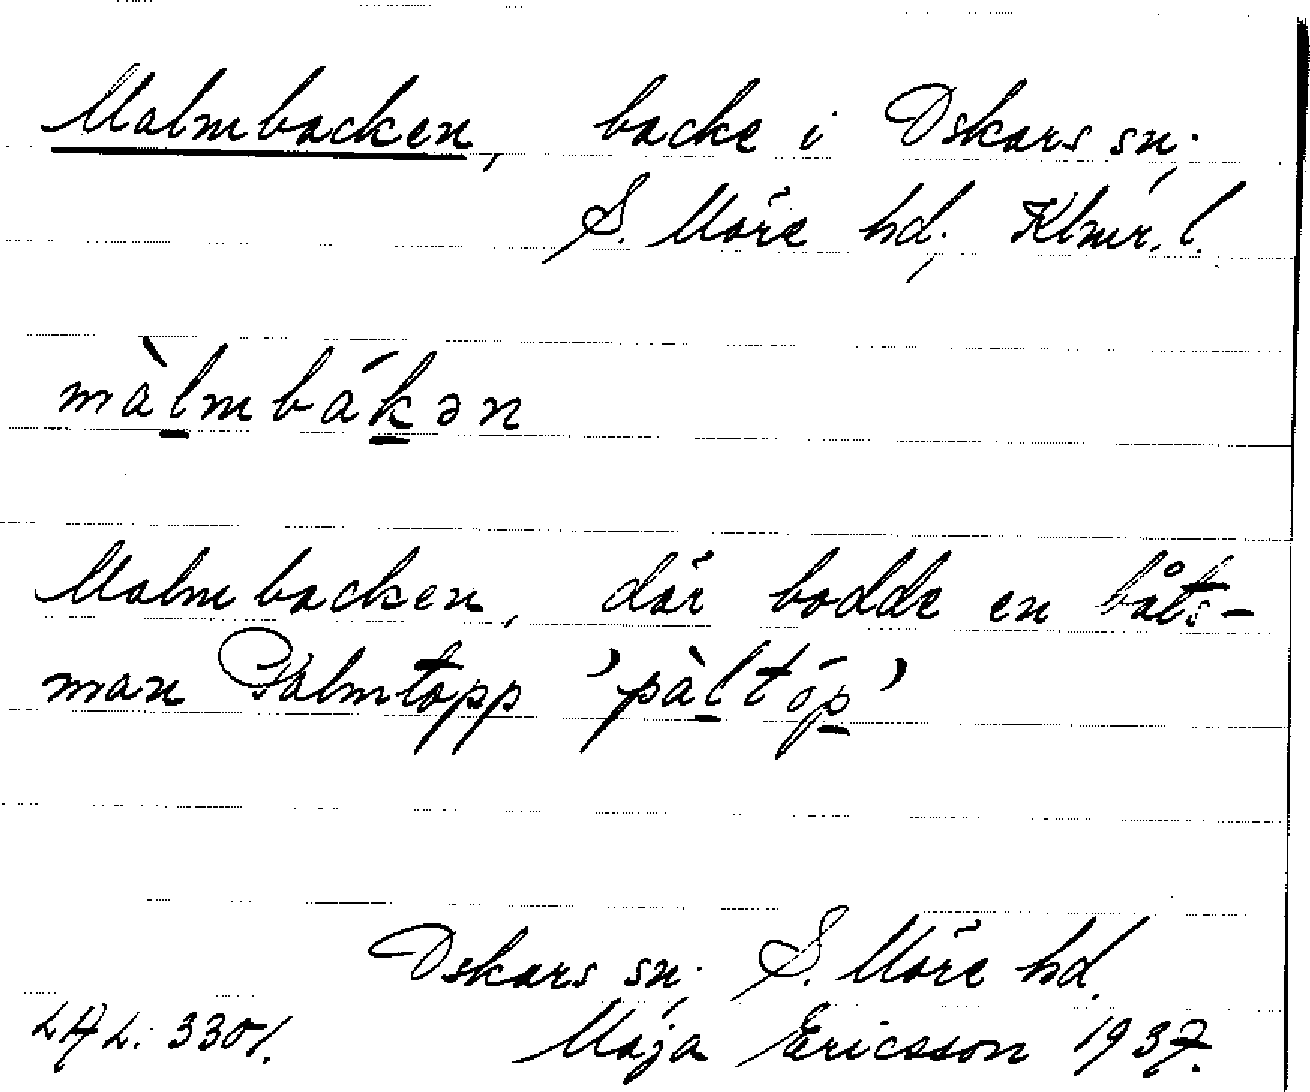 Malmbacken, backe i Oskars sn;
S. Möre hd; Klmr. l.
màlmbákən
Malmbacken, där bodde en båts-
man Palmtopp 'pàltóp'
Oskars sn; S. Möre hd.
LAL. 3301. Maja Ericsson 1937.